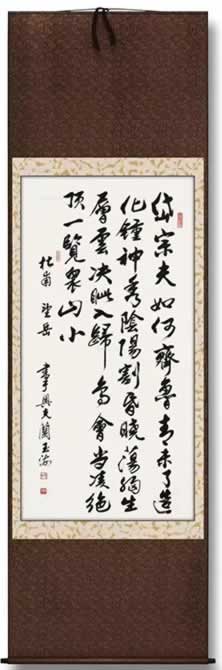 岱宗夫如何齊魯青未了造
化鍾神秀陰陽割昏曉蕩胸生
層雲决眦入歸鳥會當凌絕
頂一覽衆山小
杜甫 望岳 書于興文蘭玉